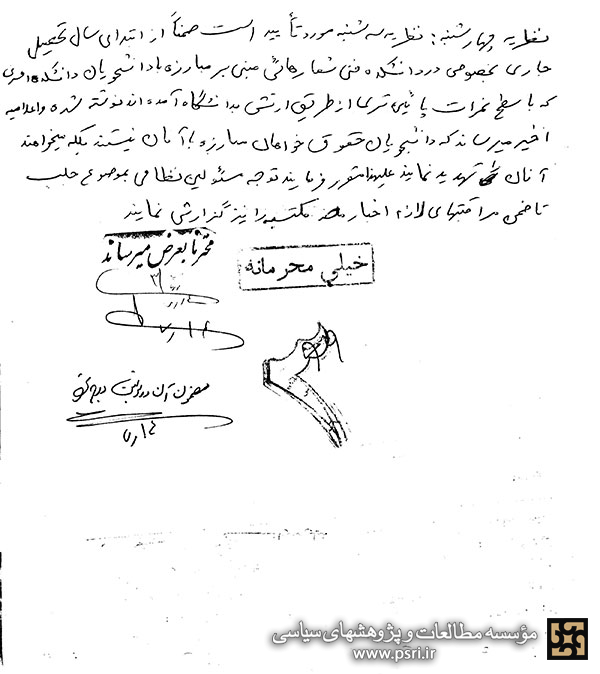 نظریه چهارشنبه: نظریه سه شنبه مورد تأیید است ضمناً از ابتدای سال تحصیلی
جاری بخصوص در دانشکده فنی شعارهائی مبنی بر مبارزه با دانشجویان دانشکده افسری
که با سطح نمرات پائین تری از طریق ارتش بدانشگاه آمده اند نوشته شده و اعلامیه
اخیر میرساند که دانشجویان حقوق خواهان مبارزه با آنان نیستند بلکه میخواهند
آنان را تهدید نمایند علیهذا مقرر فرمایند توجه مسئولین نظامی بموضوع جلب
تا ضمن مراقبتهای لازم اخبار مکتسبه را نیز گزارش نمایند
محترماً بعرض میرساند
خیلی محرمانه
مؤسسه مطالعات و پژوهشهای سیاسی
www.psri.ir